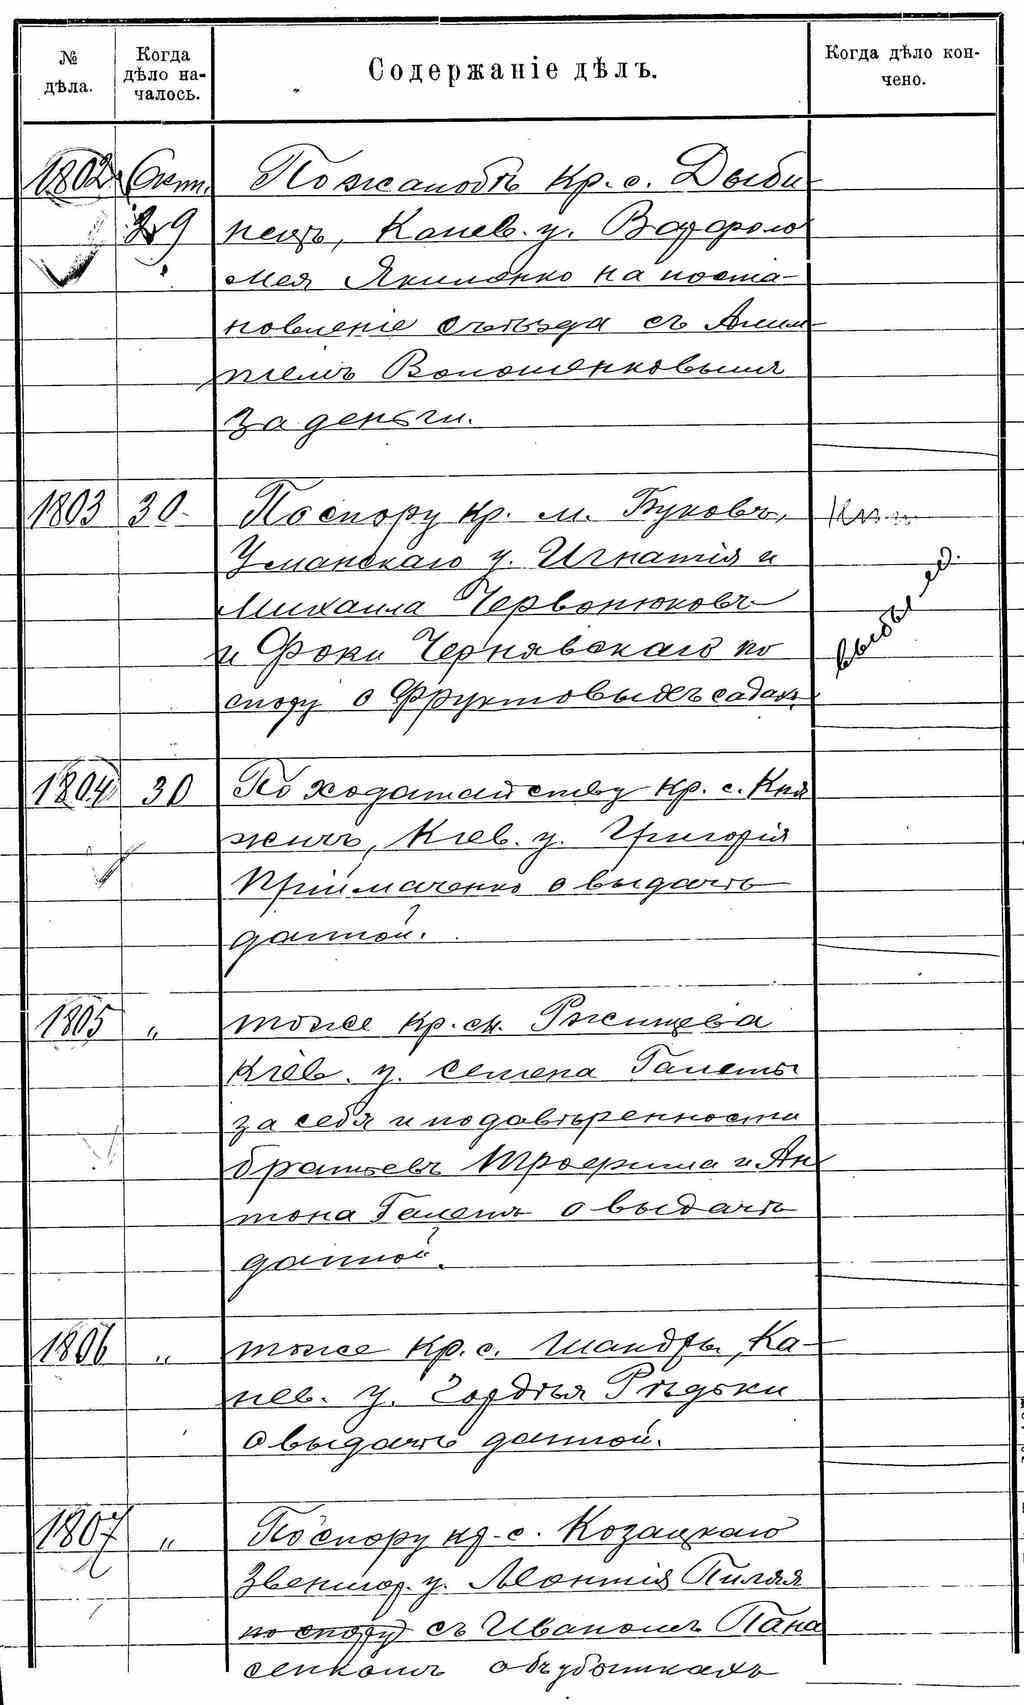 № дѣла.
Когда дѣло на-чалось.
Содержаніе дѣлъ.
Когда дѣло кон-чено.
1802 Окт. По жалобѣ кр. с. Дыби-
29 нецъ, Канев. у. Варфоло
мея Якименко на поста-
новленіе съѣзда съ Алим-
піемъ Волошенковымъ
за деньги.
1803 30 По спору кр. м. Буковъ,
Уманскаго у. Игнатія и
Михаила Червонюковъ
и Фоки Чернявскаго по
спору о фруктовыхъ садахъ.
выбыло.
1804 30 По ходатайству кр. с. Кня
жичъ, Кіев. у. Григорія
Приймаченко о выдачѣ
данной.
1805 „ тоже кр. м. Ржищева
Кіев. у. Семена Галеты
за себя и по довѣренности
братьевъ Трофима и Ан
тона Галетъ о выдачѣ
данной.
1806 „ тоже кр. с. Шандры, Ка-
нев. у. Гордѣя Рѣдьки
о выдачѣ данной.
1807 „ По спору кр. с. Козацкаго
Звенигор. у. Леонтія Пиляя
по спору съ Иваномъ Пана
сенкомъ объ убыткахъ